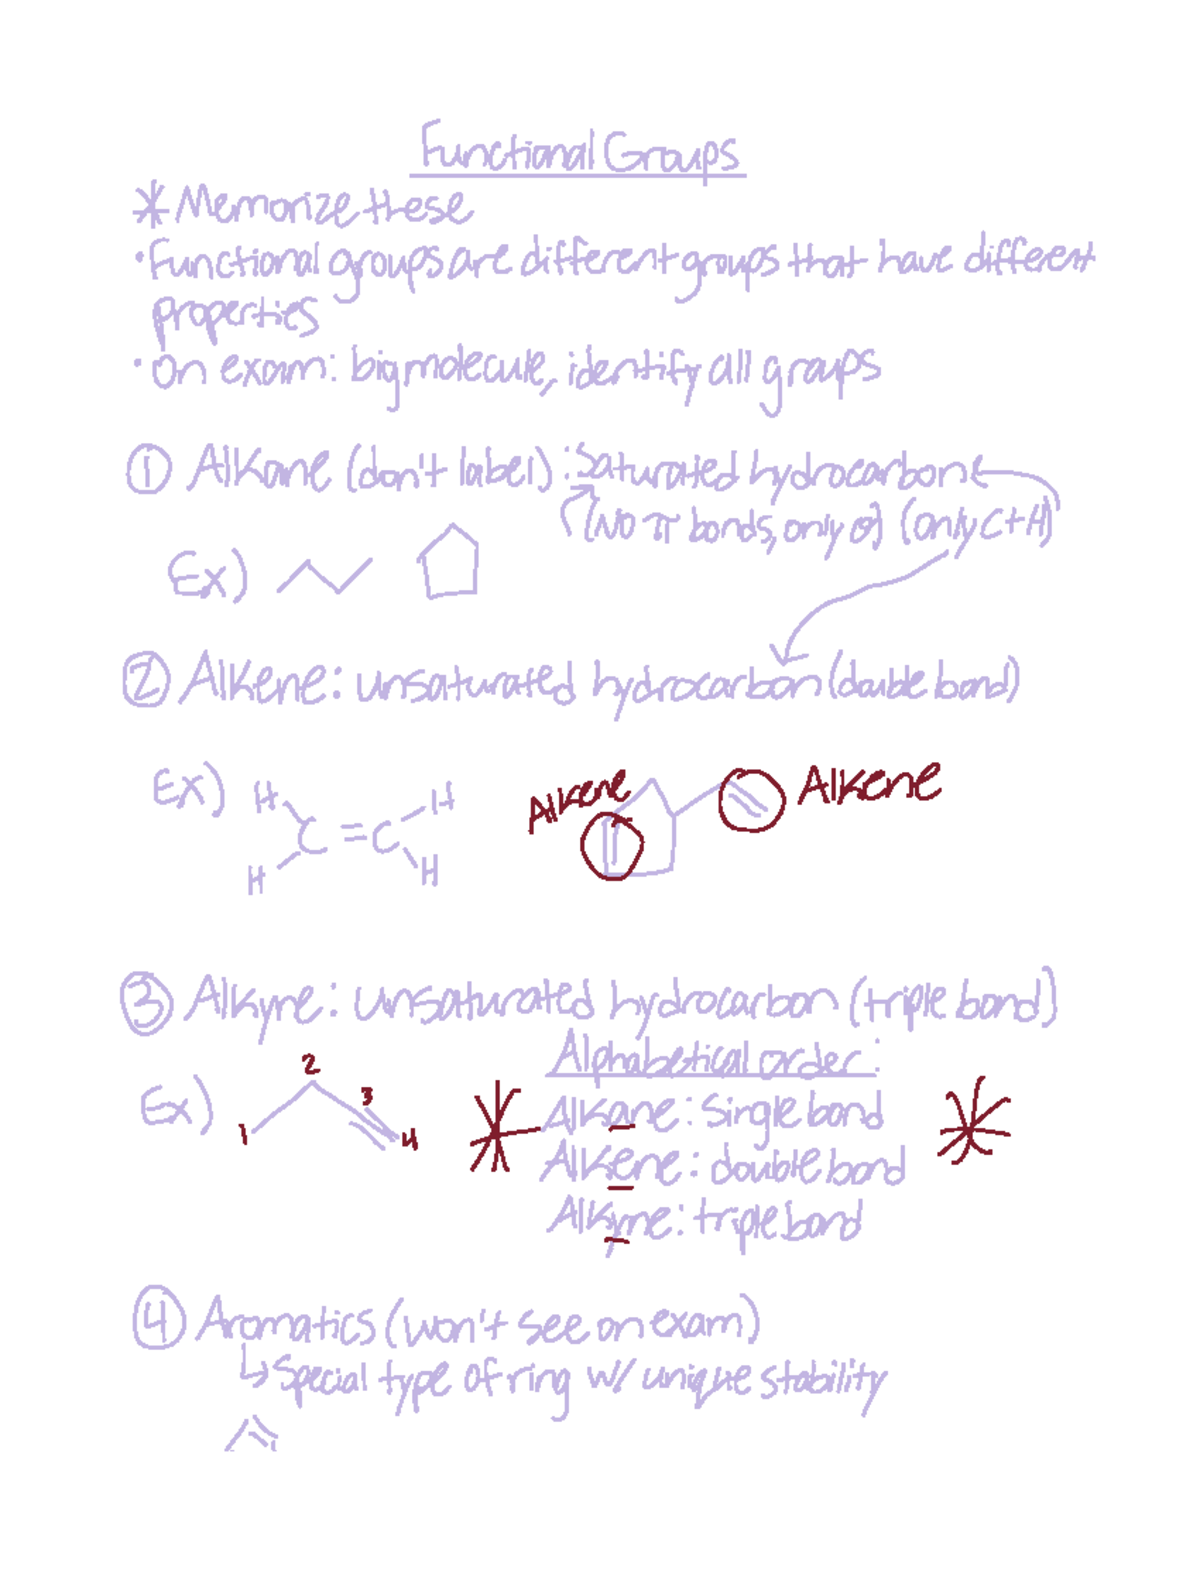 Functional Groups
* Memorize these
• Functional groups are different groups that have different
properties
• On exam: big molecule, identify all groups
① Alkane (don't label): Saturated hydrocarbon
(No π bonds, only σ) (only C+H)
Ex)
② Alkene: unsaturated hydrocarbon (double bond)
Ex) H H Alkene Alkene
C = C
H H
③ Alkyne: unsaturated hydrocarbon (triple bond)
Alphabetical order:
Ex) 1 2 3 4
* Alkane: Single bond *
Alkene: double bond
Alkyne: triple bond
④ Aromatics (won't see on exam)
↳ Special type of ring w/ unique stability